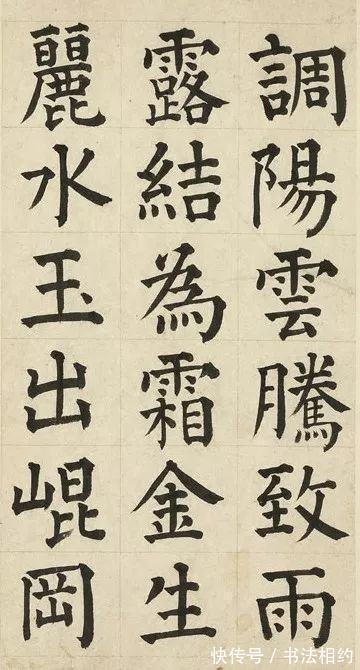 調陽雲騰致雨
露結為霜金生
麗水玉出崐岡
快传号／书法相约